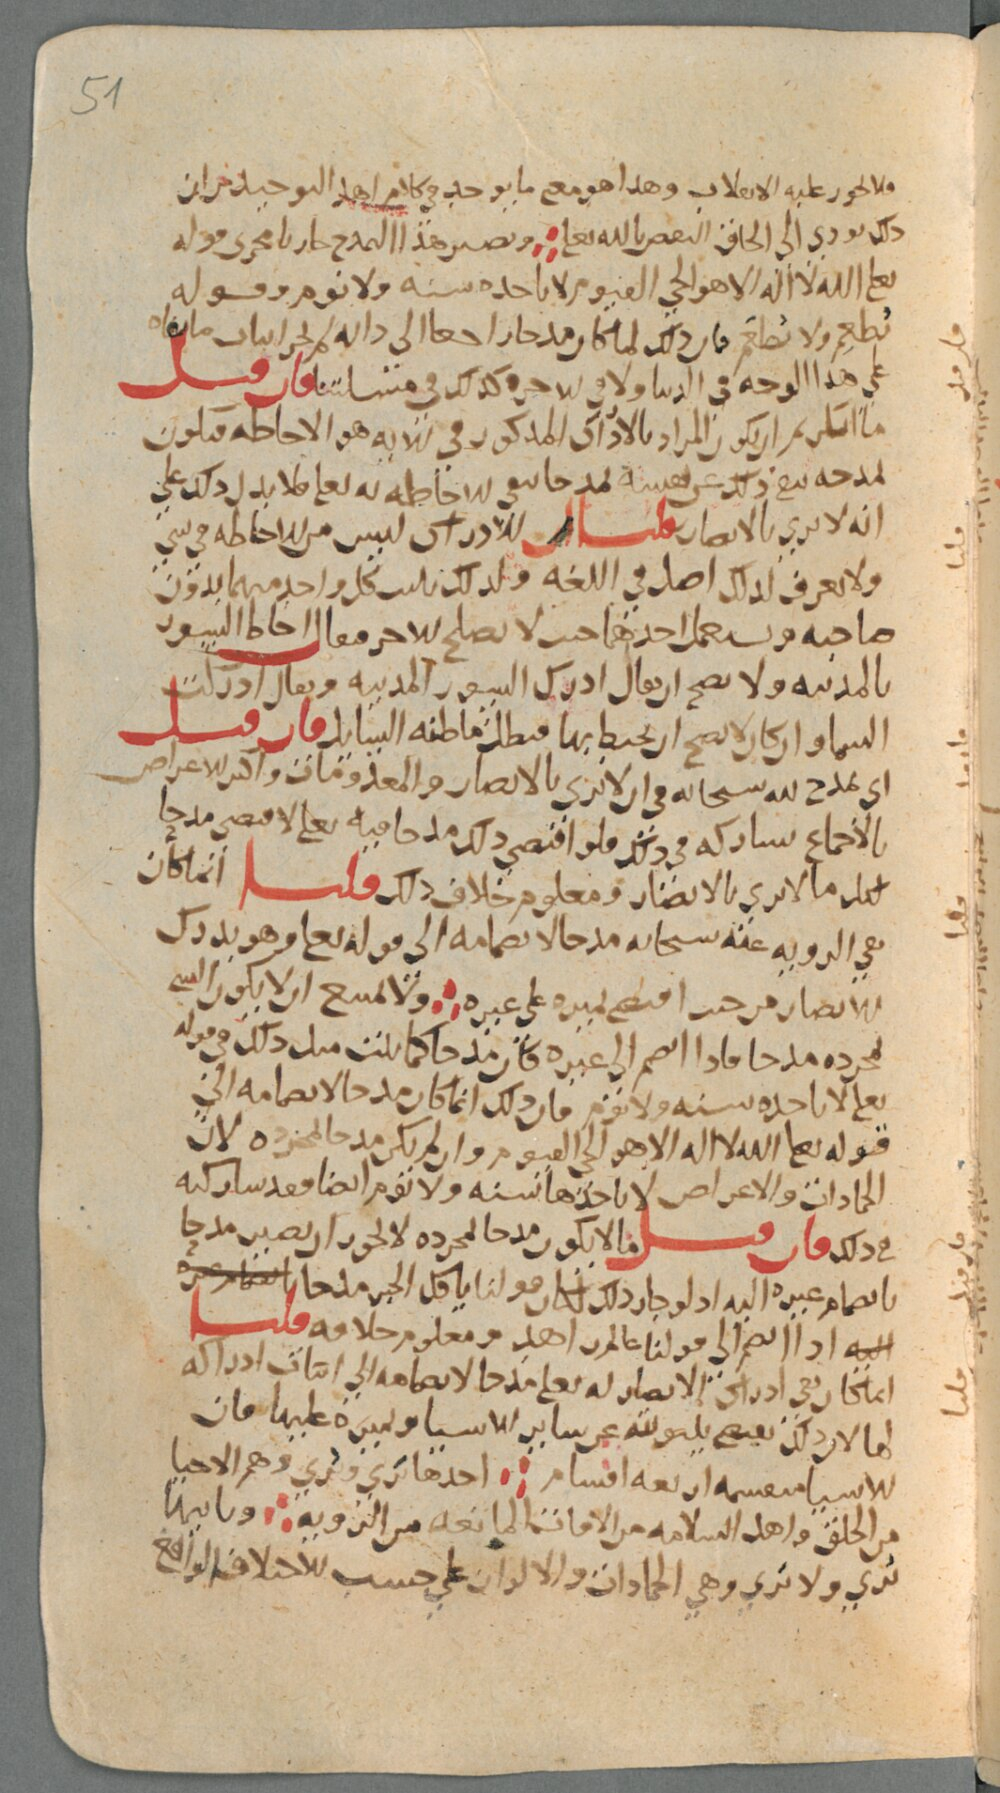 51
ولا يجوز عليه الانقلاب وهذا هو معنى ما يوجد في كلام اهل التوحيد من ان
ذلك يودي الى الحاق النقص بالله تعالى ويصير هذا التمدح جاريا مجرى قوله
تعالى الله لا اله الا هو الحي القيوم لا تاخذه سنة ولا نوم وقوله
يُطعِم ولا يُطعَم فان ذلك لما كان مدحا راجعا الى ذاته لم يجز اثبات ما نفاه
على هذا الوجه في الدنيا ولا في الاخره كذلك في مسئلتنا فان قيل
ما انكرتم ان يكون المراد بالادراك المذكور في الايه هو الاحاطه فيكون
تمدحه بنفي ذلك عن نفسه تمدحا بنفي الاحاطه به تعالى فلا يدل ذلك على
انه لا يرى بالابصار قلنا ان الادراك ليس من الاحاطه في شي
ولا يعرف لذلك اصل في اللغه ولذلك يثبت كل واحد منهما بدون
صاحبه ويستعمل احدهما حيث لا يصلح الاخر فيقال احاط السور
بالمدينه ولا يصح ان يقال ادرك السور المدينه ويقال ادركت
السما وان كان لا يصح ان يحيط بها فبطل ما ظنه السايل فان قيل
اي تمدح لله سبحانه في ان لا يرى بالابصار والمعدومات واكثر الاعراض
بالاجماع تشاركه في ذلك فلو اقتضى ذلك مدحا فيه تعالى لاقتضى مدحا
لكل ما لا يرى بالابصار ومعلوم خلاف ذلك قلنا انما كان
نفي الرويه عنه سبحانه مدحا لانضمامه الى قوله تعالى وهو يدرك
الابصار من حيث اقتضى تميزه على غيره ولا يمتنع ان لا يكون الشي
بمجرده مدحا فاذا انضم الى غيره كان مدحا كما يثبت مثل ذلك في قوله
تعالى لا تاخذه سنة ولا نوم فان ذلك انما كان مدحا لانضمامه الى
قوله تعالى الله لا اله الا هو الحي القيوم وان لم يكن مدحا بمجرده لان
الجمادات والاعراض لا تاخذها سنة ولا نوم ايضا فقد شاركته
في ذلك فان قيل ما لا يكون مدحا بمجرده لا يجوز ان يصير مدحا
بانضمام غيره اليه اذ لو جاز ذلك لكان قولنا ياكل الخبز مدحا
اليه اذا انضم الى قولنا عالم زاهد ومعلوم خلافه قلنا
انما كان نفي ادراك الابصار له تعالى مدحا لانضمامه الى اثبات ادراكه
لها لان ذلك يقتضي بينونته عن ساير الاشيا وتميزه عليها فان
الاشيا منقسمه اربعه اقسام احدها يَرى ويُرى وهم الاحيا
من الخلق واهل السلامه من الافات المانعه من الرويه وثانيها
يُرى ولا يَرى وهي الجمادات والالوان على حسب الاختلاف الواقع